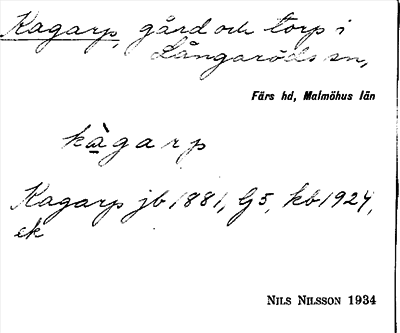 Kagarp, gård och torp i
Långaröds sn,
Färs hd, Malmöhus län
kàgarp
Kagarp jb 1881, G5, kb 1924,
ek
NILS NILSSON 1934